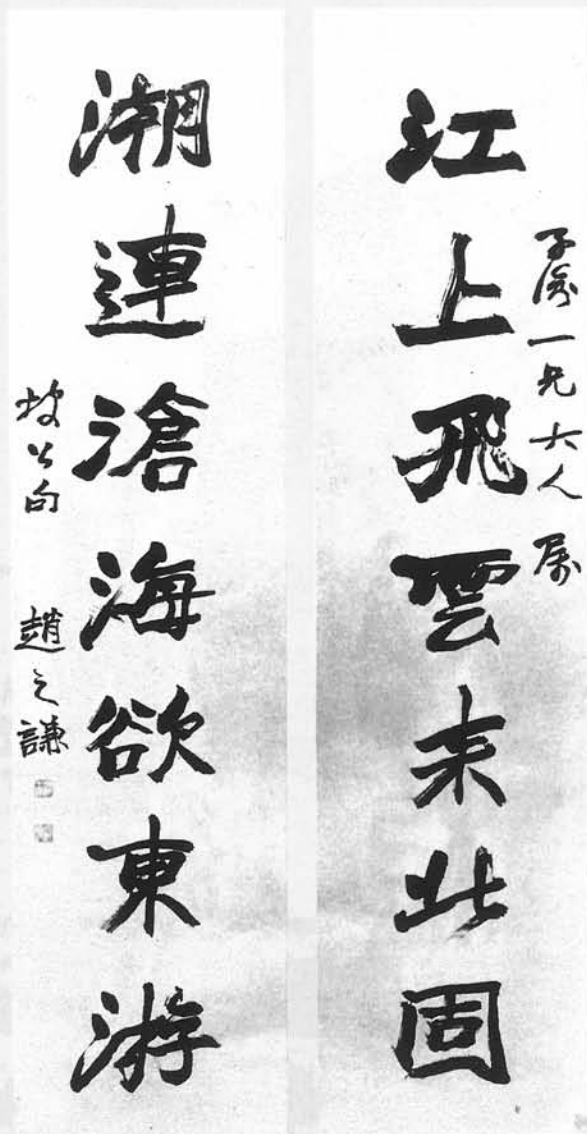 江上飛雲来北固
一兄大人 属
潮連滄海欲東游
坡公句 趙之謙